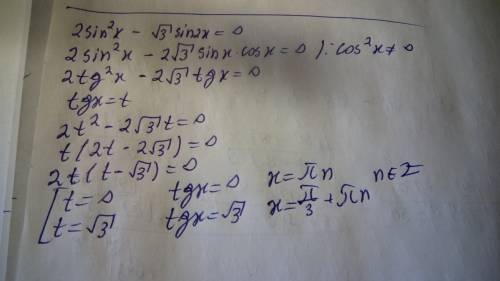 2sin²x - √3 sin2x = 0
2sin²x - 2√3 sinx·cosx = 0 ) : cos²x ≠ 0
2tg²x - 2√3 tgx = 0
tgx = t
2t² - 2√3 t = 0
t(2t - 2√3) = 0
2t(t - √3) = 0
[ t = 0 tgx = 0 x = πn n ∈ Z
t = √3 tgx = √3 x = π/3 + πn